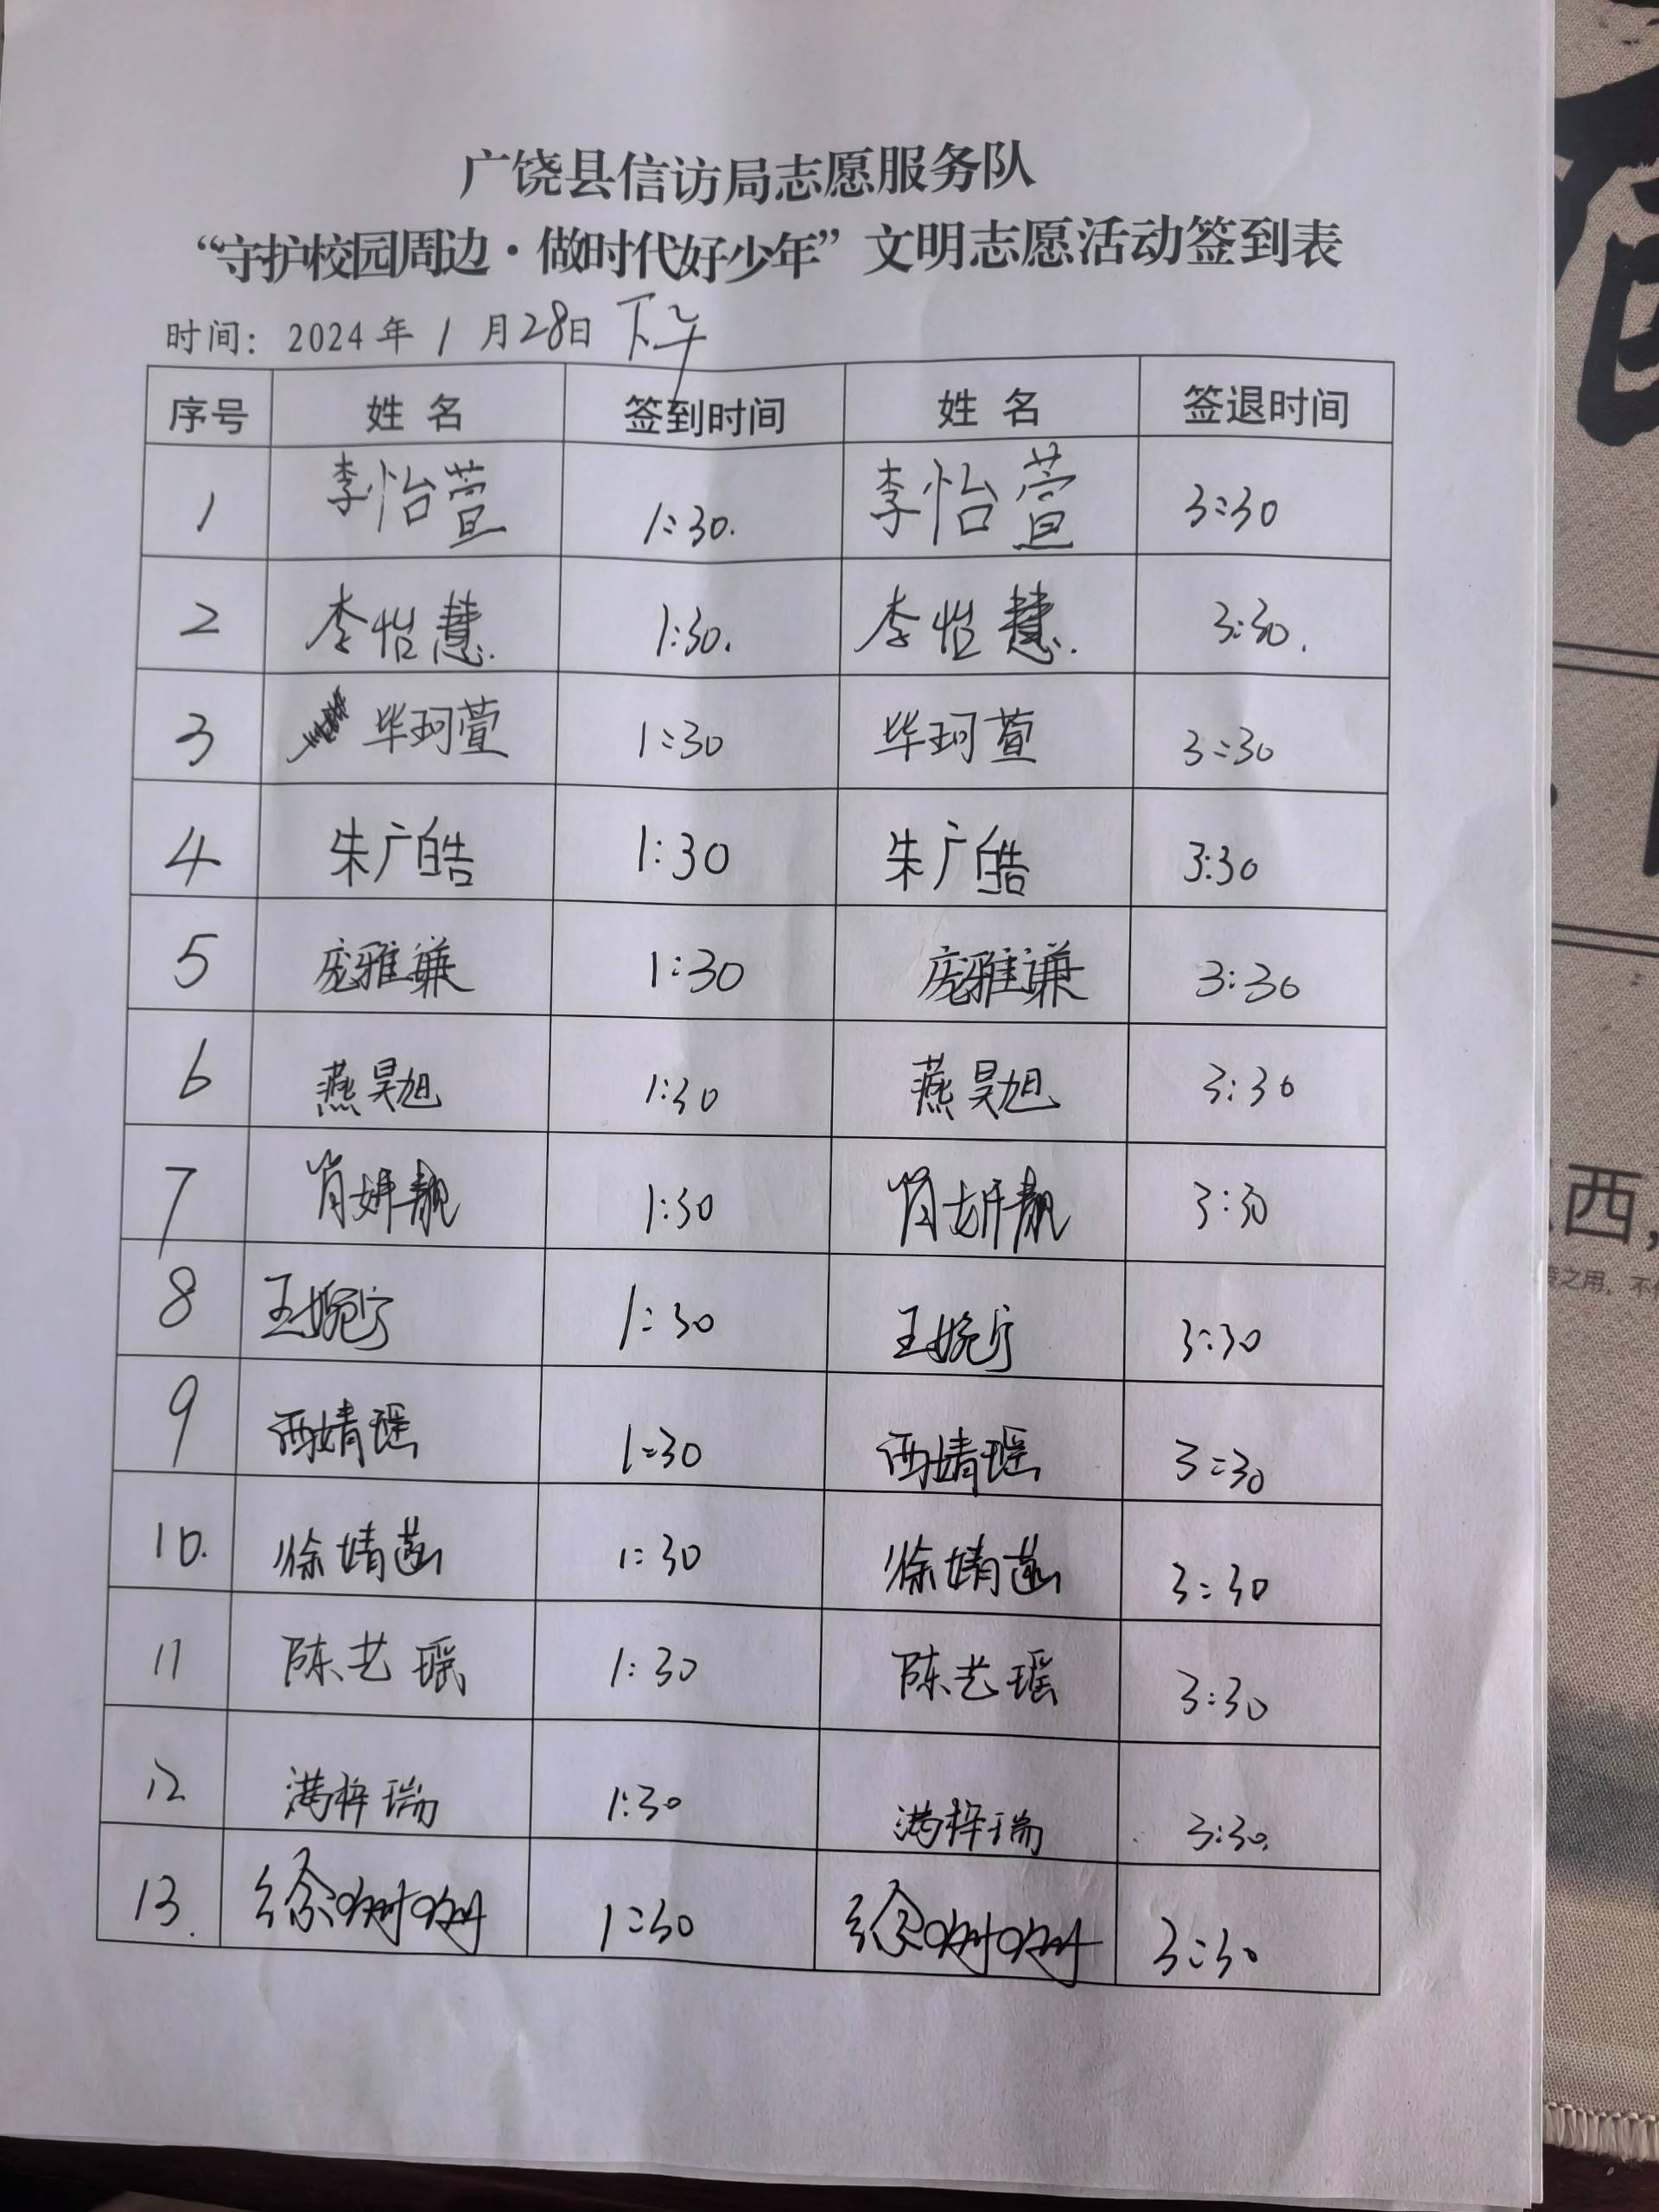 广饶县信访局志愿服务队
“守护校园周边·做时代好少年”文明志愿活动签到表
时间：2024年1月28日下午
序号 姓名 签到时间 姓名 签退时间
1 李怡萱 1:30. 李怡萱 3:30
2 李怡慧. 1:30. 李怡慧. 3:30.
3 毕珂萱 1:30 毕珂萱 3:30
4 朱广皓 1:30 朱广皓 3:30
5 庞雅谦 1:30 庞雅谦 3:30
6 燕昊旭 1:30 燕昊旭 3:30
7 肖妍靓 1:30 肖妍靓 3:30
8 王婉宁 1:30 王婉宁 3:30
9 西婧瑶 1:30 西婧瑶 3:30
10. 徐婧菡 1:30 徐婧菡 3:30
11 陈艺瑶 1:30 陈艺瑶 3:30
12 满梓瑞 1:30 满梓瑞 3:30.
13. 徐 1:30 徐 3:30
西，
之用，不